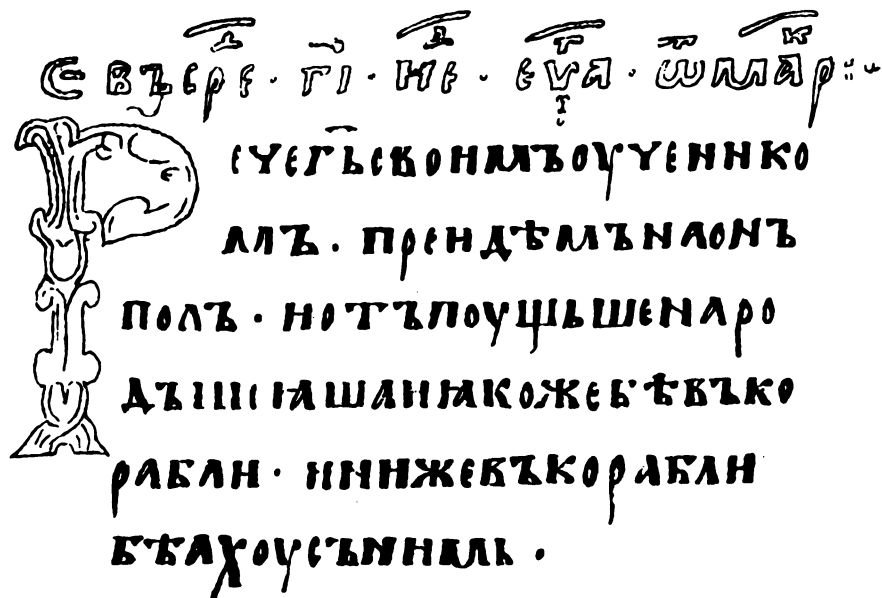 С въ сре҃д · г҃і · не҃д · еѵ҃а · ѿ ма҃рк :·
Рече г҃ь своимъ оученико
мъ · преидѣмъ на онъ
полъ · и отъпоущьше наро
дъ и ꙗкоже бѣ въ ко
рабли · и ини же въ корабли
бѣахоу съ нимь ·